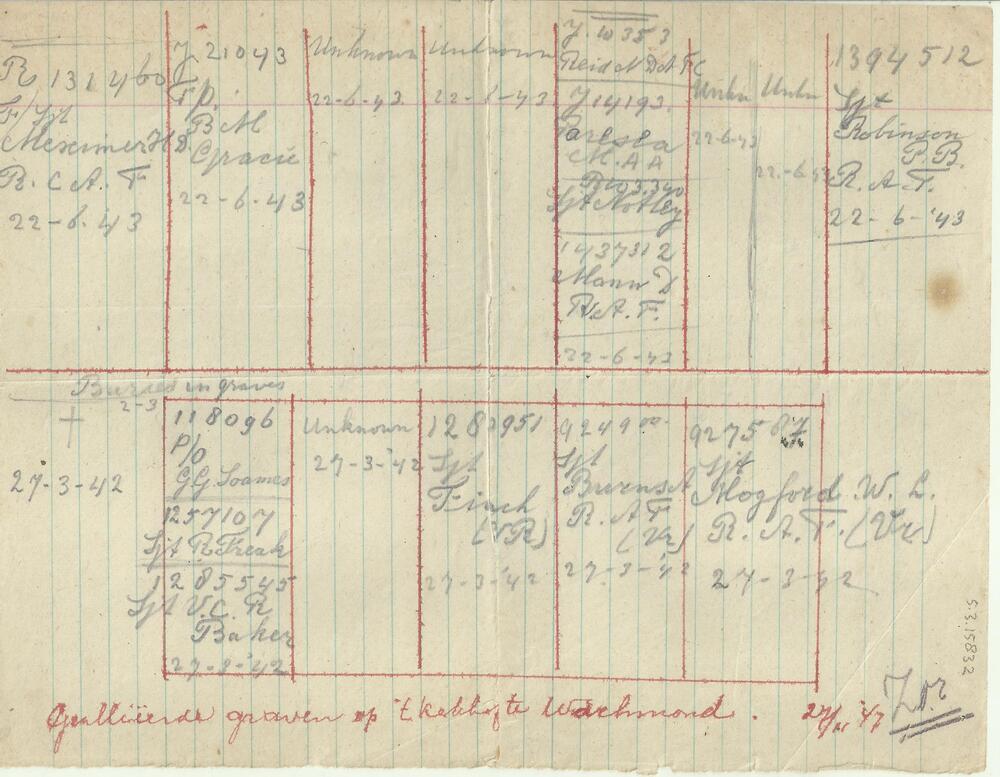 R 131460
F/Sjt
Meximer H D.
R. C A. F
22-6-'43
J 21043
B M
Gracie
22-6-'43
Unknown
22-6-43
Unknown
22-6-43
J. 10353
Reid N D A
J14193.
M. A A
Sjt Notley
1437312
Mann D
R. A. F.
22-6-43
Unkn
22-6-43
Unkn
22-6-43
1394512
Sjt
Robinson
P. B.
R. A. F.
22-6-'43
Buried in graves
2-3
27-3-42
118096
P/O
G G Soames
1257107
Sjt R Freak
1285545
Sjt V. C. R
Baker
27-3-'42
Unknown
27-3-'42
Sjt
Finch
(VR)
27-3-'42
Sjt
R. A F
(Vr)
27-3-'42
Sjt
Mogford. W. L.
R. A. F. (Vr)
27-3-42
Geallieerde graven op 't kerkhof te Warmond.
S.3.15832